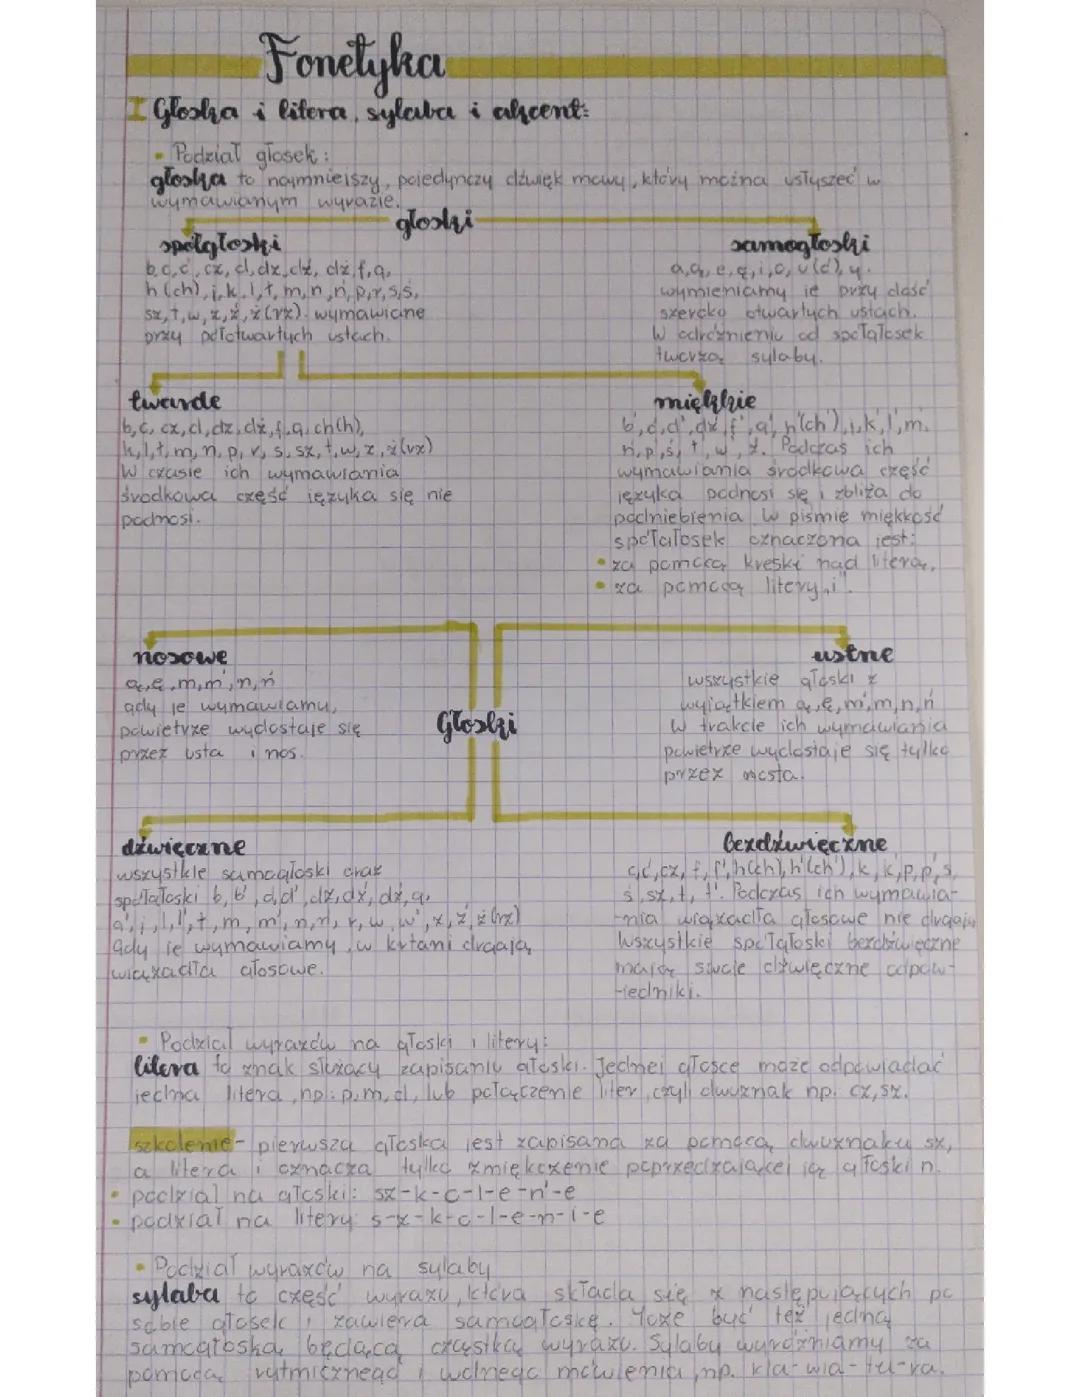 Fonetyka
I Głoska i litera, sylaba i akcent:
• Podział głosek:
głoska to najmniejszy, pojedynczy dźwięk mowy, który można usłyszeć w
wymawianym wyrazie.
głoski
spółgłoski
b, c, ć, cz, d, dz, dź, dż, f, g,
h (ch), j, k, l, ł, m, n, ń, p, r, s, ś,
sz, t, w, z, ź, ż (rz). wymawiane
przy półotwartych ustach.
samogłoski
a, ą, e, ę, i, o, u (ó), y.
wymieniamy je przy dość
szeroko otwartych ustach.
W odróżnieniu od spółgłosek
tworzą sylaby.
twarde
b, c, cz, d, dz, dż, f, g, ch (h),
k, l, ł, m, n, p, r, s, sz, t, w, z, ż (rz)
W czasie ich wymawiania
środkowa część języka się nie
podnosi.
miękkie
b', ć, d', dź, f', g', h' (ch'), j, k', l', m'.
ń, p', ś, t', w', ź. Podczas ich
wymawiania środkowa część
języka podnosi się i zbliża do
podniebienia. W piśmie miękkość
spółgłosek oznaczona jest:
• za pomocą kreski nad literą,
• za pomocą litery „i".
nosowe
ą, ę, m, m', n, ń
gdy je wymawiamy,
powietrze wydostaje się
przez usta i nos.
Głoski
ustne
wszystkie głoski z
wyjątkiem ą, ę, m', m, n, ń
W trakcie ich wymawiania
powietrze wydostaje się tylko
przez usta.
dźwięczne
wszystkie samogłoski oraz
spółgłoski b, b', d, d', dz, dź, dż, g,
g', j, l, l', ł, m, m', n, ń, r, w, w', z, ź, ż (rz)
Gdy je wymawiamy, w krtani drgają
wiązadła głosowe.
bezdźwięczne
c, ć, cz, f, f', h (ch), h' (ch'), k, k', p, p', s,
ś, sz, t, t'. Podczas ich wymawia-
-nia wiązadła głosowe nie drgają
Wszystkie spółgłoski bezdźwięczne
mają swoje dźwięczne odpow-
-iedniki.
• Podział wyrazów na głoski i litery:
litera to znak służący zapisaniu głoski. Jednej głosce może odpowiadać
jedna litera, np: p, m, d, lub połączenie liter, czyli dwuznak np. cz, sz.
szkolenie- pierwsza głoska jest zapisana za pomocą dwuznaku sz,
a litera i oznacza tylko zmiękczenie poprzedzającej ją głoski n.
• podział na głoski: sz-k-o-l-e-n'-e
• podział na litery: s-z-k-o-l-e-n-i-e
• Podział wyrazów na sylaby
sylaba to część wyrazu, która składa się z następujących po
sobie głosek i zawiera samogłoskę. Może być też jedną
samogłoską będącą cząstką wyrazu. Sylaby wyróżniamy za
pomocą rytmicznego i wolnego mówienia, np. kla-wia-tu-ra.